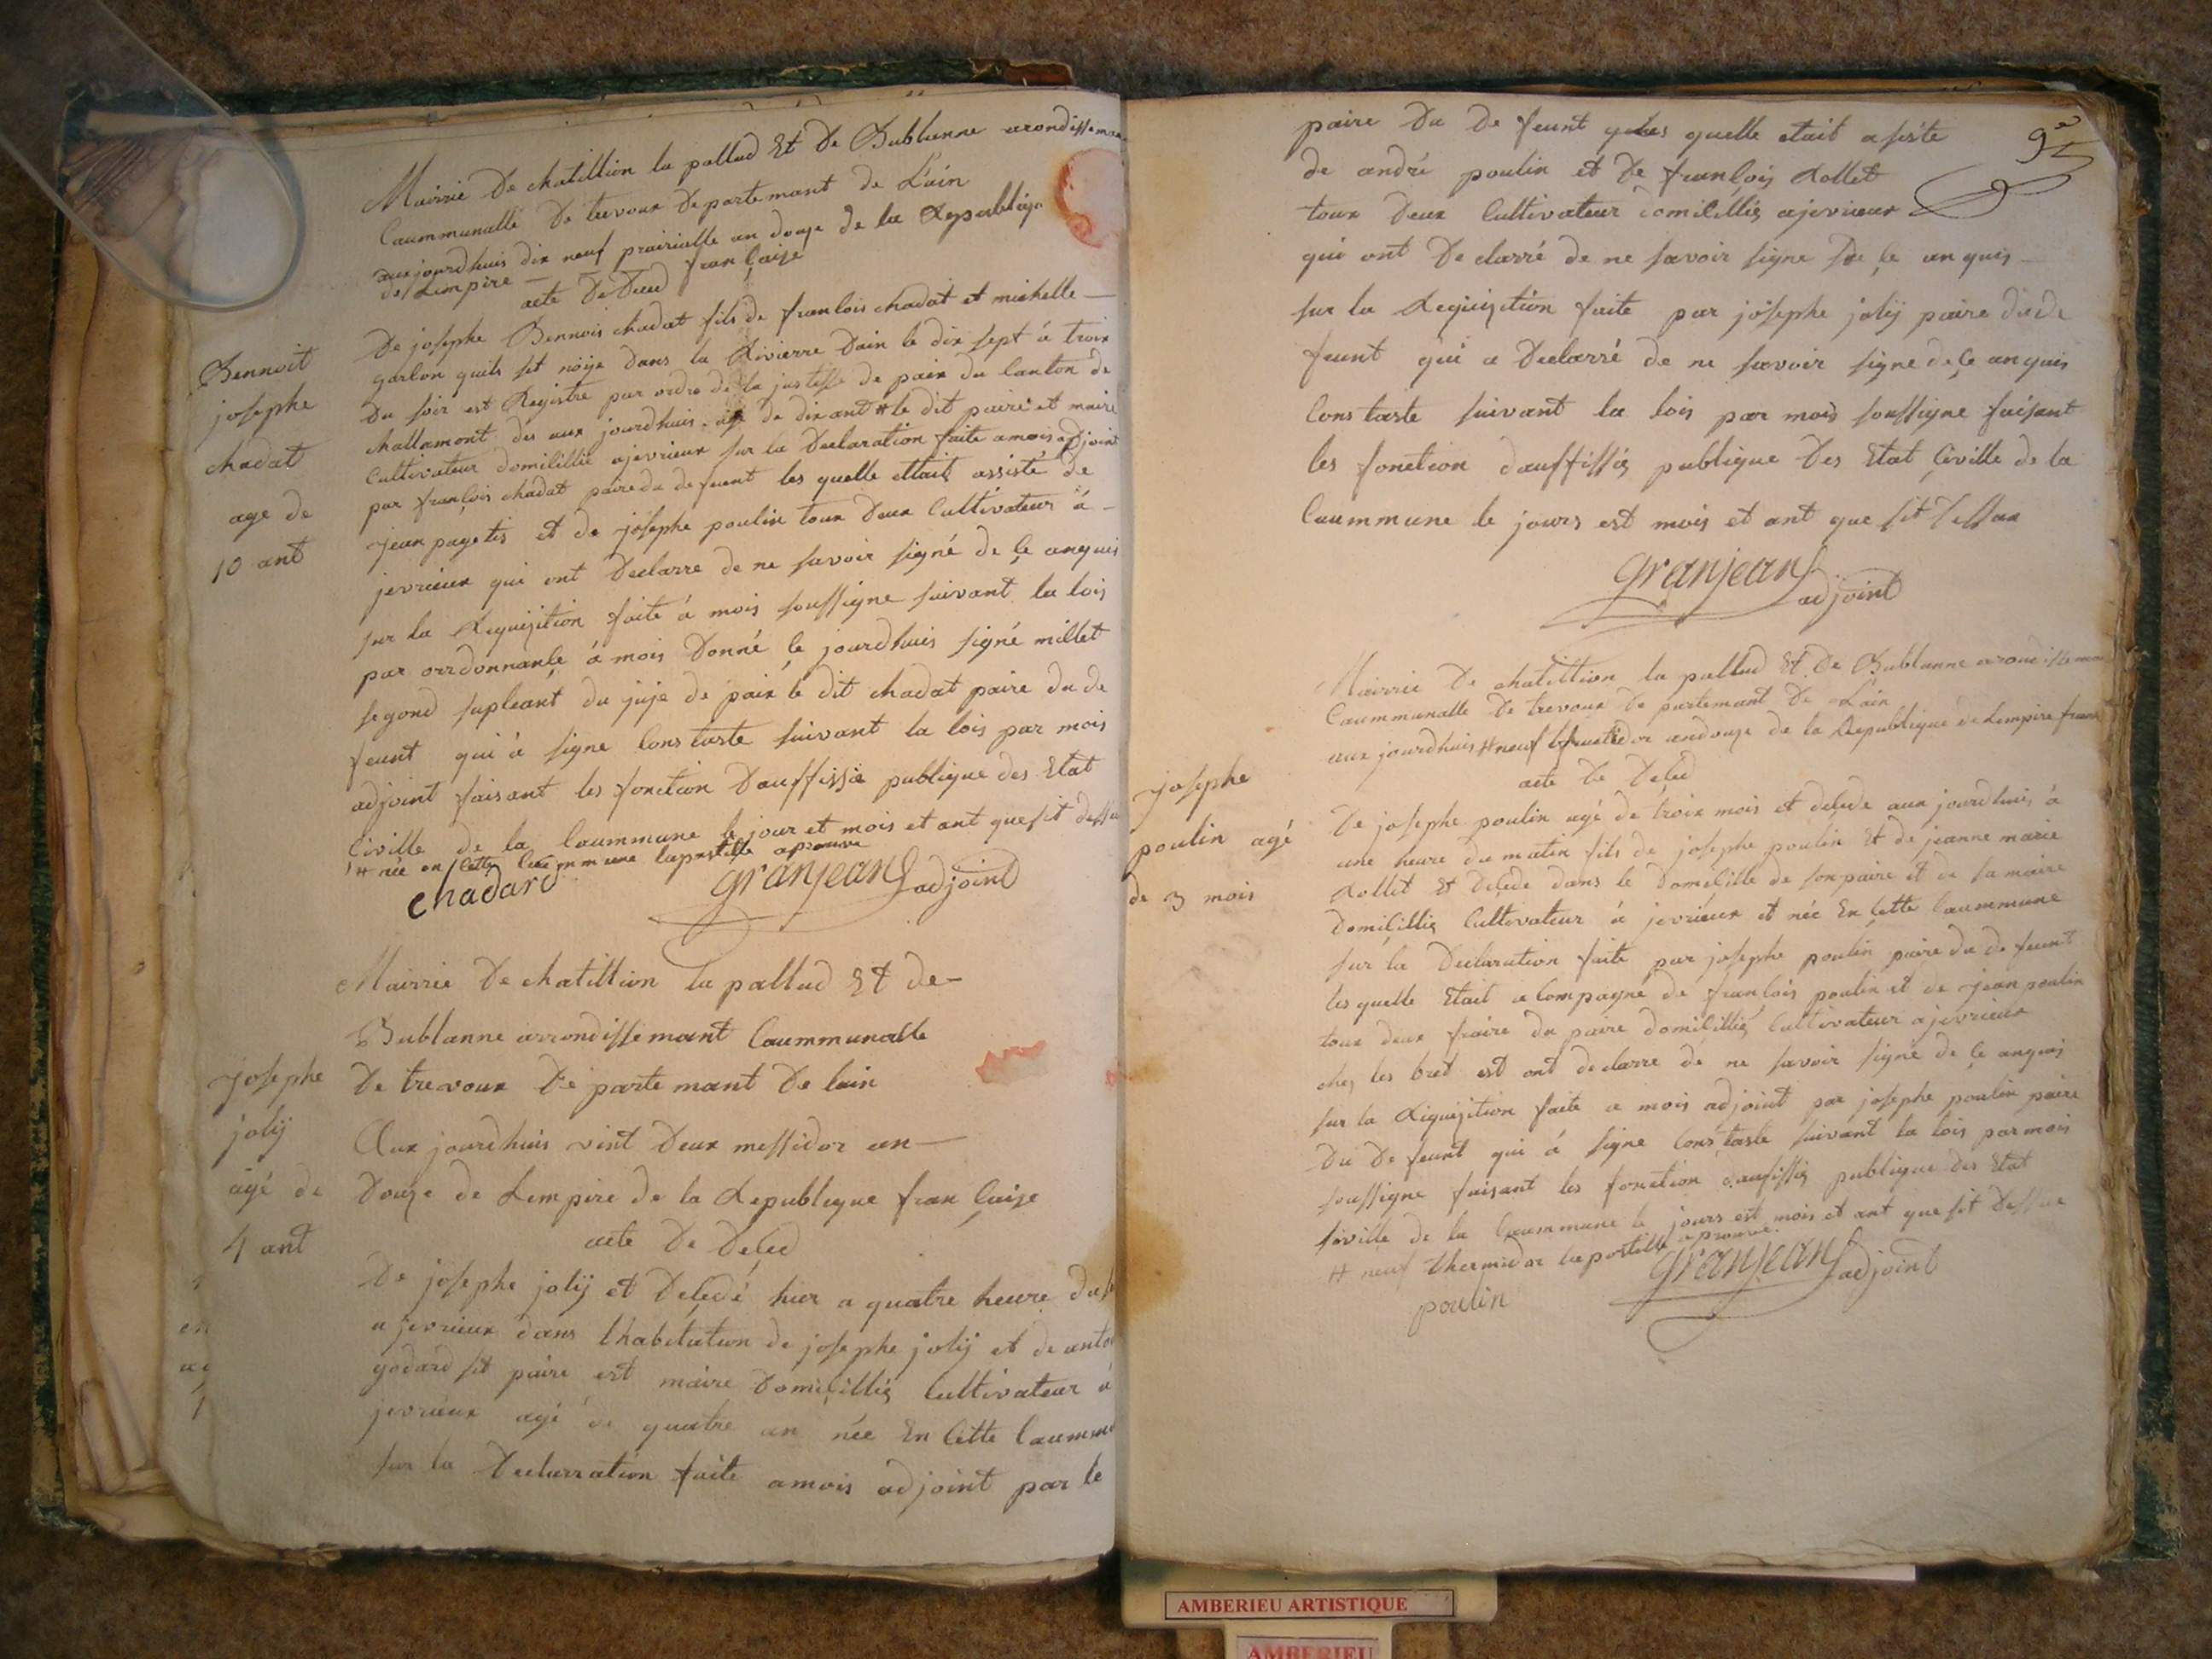 Mairrie De chatillion la pallud Et De Bublanne arondissemant
Caummunalle De trevoux Departemant de Lain
aux jourdhuis dix neuf prairialle an douze de la Republiqe
de Lempire — francaise
acte De Deced
De josephe Bennois chadat fils de francois chadat et michelle —
garcon quils sit noije dans la Rivierre Dain le dix sept à trois
Du soir est Registre par ordre de la justisse de paix du canton de
challamont des aux jourdhuis agé de dix ant # le dit paire et maire
Cultivateur domicillié ajevrieux sur la Declaration faite amois adjoint
par francois chadat paire du defeunt les quelle ettait assisté de
jean pagetis et de josephe poulin toux deux Cultivateur à —
jevrieux qui ont Declarre de ne savoir signé de ce anquis
sur la Requizition faite à mois soussigne suivant la lois
par orrdonnance à mois Donné ce jourdhuis signé millet
segond supleant du juje de paix le dit chadat paire du de
feunt qui à signe Constaste suivant la lois par mois
adjoint faisant les fonction Dauffissie publique des Etat
Civille de la Caummune le jour et mois et ant que sit dessu
# née en cette Caummune lapostille aprouve
chadard
granjean adjoint
Bennoit
josephe
chadat
age de
10 ant
Mairrie De chatillion la pallud Et de —
Bublanne arrondissemant Caummunalle
De trevoux De partemant De lain
Aux jourdhuis vint Deux messidor an —
Douze de Lempire de la Republique francaise
acte De Deced
De josephe jolij et Decedé hier a quatre heure du
a jevrieux dans lhabitation de josephe jolij et de anto
godard sit paire est maire Domicillies Cultivateur à
jevrieux agé de quatre an née En Cette Caummu
sur la Declarration faite amois adjoint par le
josephe
jolij
agé de
4 ant
paire Du De feunt quelles quelle etait a siste
de andré poulin et De francois Rollet
toux Deux Cultivateur domicillies ajevrieux
qui ont Declarré de ne savoir signe de ce anquis —
sur la Requizition faite par josephe jolij paire dude
feunt qui a Declarré de ne savoir signe de ce anquis
Constaste suivant la lois par mois soussigne faisant
les fonction dauffissies publique Des Etat Civille de la
Caummune le jours est mois et ant que sit Dessux
granjean adjoint
Mairrie De chatillion la pallud Et De Bublanne arondissemant
Caummunalle De trevoux De partemant De Lain
aux jourdhuis # neuf fructidor an douze de la Republique de Lempire franc
acte De Deced
De josephe poulin agé de troix mois et decede aux jourdhuis à
une heure du matin fils de josephe poulin Et de jeanne marie
Rollet Et Decede dans le Domicille de son paire et de sa maire
domicillies Cultivateur à jevrieux et née En Cette Caummune
sur la Declaration faite par josephe poulin paire du de feunt
les quelle Etait a Compagné de francois poulin et de jean poulin
toux deux fraire du paire domicillies Cultivateur ajevrieux
chez les bret est ont declarre de ne savoir signe de ce anquis
sur la Riquizition faite a mois adjoint par josephe poulin paire
Du De feunt qui à signe Constaste suivant la lois par mois
soussigne faisant les fonction daufissies publique des Etat
siville de la Caummune le jours est mois et ant que sit Dessue
# neuf thermidor lapostille aprouve.
poulin
granjean adjoint
josephe
poulin agé
de 3 mois
AMBERIEU ARTISTIQUE
AMBERIEU